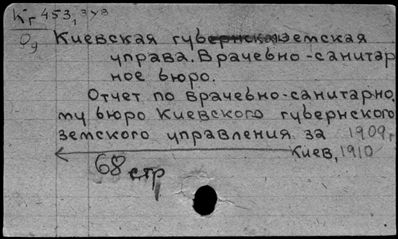 Кг 453,343
Од
Киевская губернская земская
управа. Врачебно-санитар
ное бюро.
Отчет по врачебно-санитарно
му бюро Киевского губернского
земского управления за 1909г
Киев, 1910
68 стр